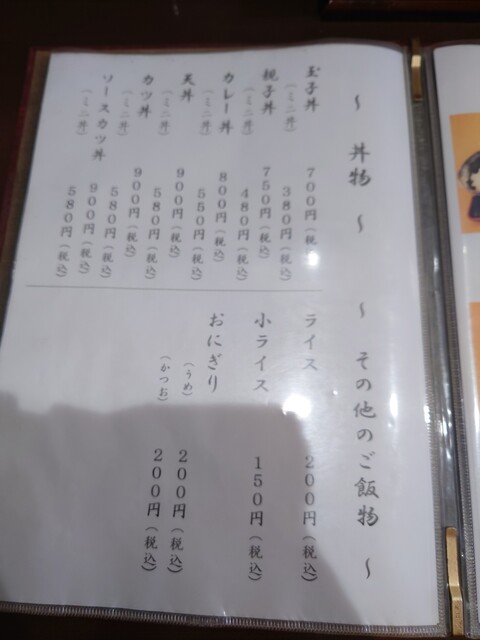 ～ 丼物 ～
玉子丼 700円（税込）
（ミニ丼） 380円（税込）
親子丼 750円（税込）
（ミニ丼） 480円（税込）
カレー丼 800円（税込）
（ミニ丼） 550円（税込）
天丼 900円（税込）
（ミニ丼） 580円（税込）
カツ丼 900円（税込）
（ミニ丼） 580円（税込）
ソースカツ丼 900円（税込）
（ミニ丼） 580円（税込）
～ その他のご飯物 ～
ライス 200円（税込）
小ライス 150円（税込）
おにぎり
（うめ） 200円（税込）
（かつお） 200円（税込）